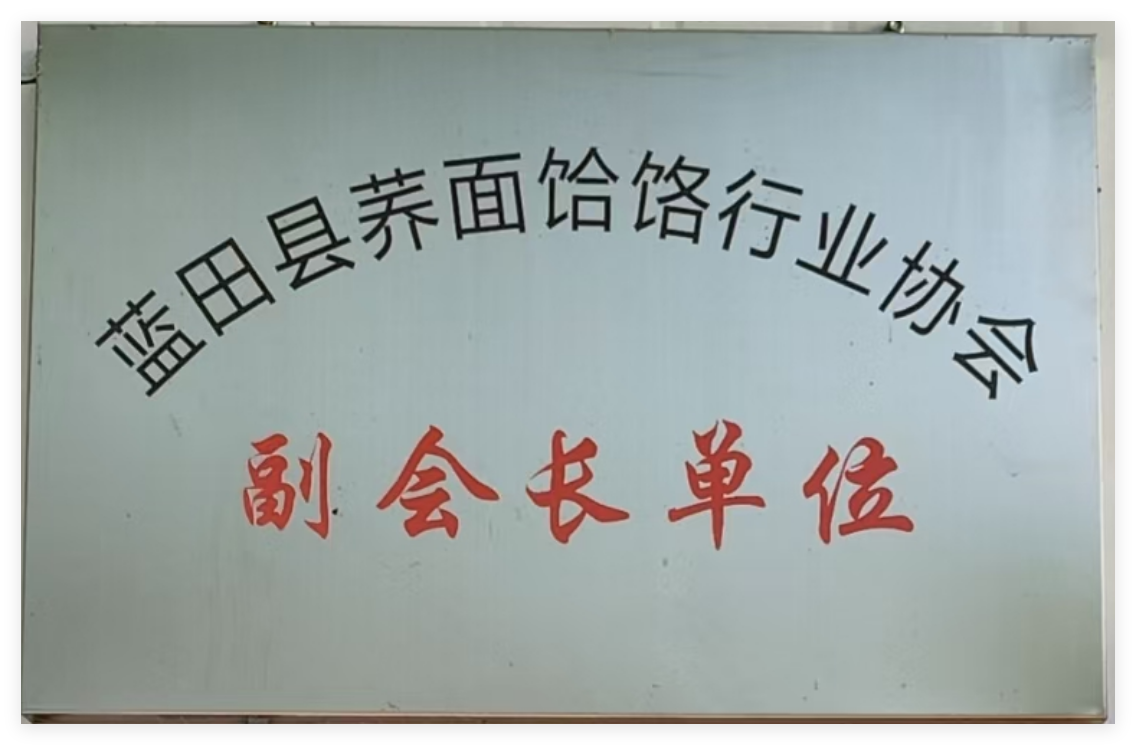 蓝田县荞面饸饹行业协会
副会长单位